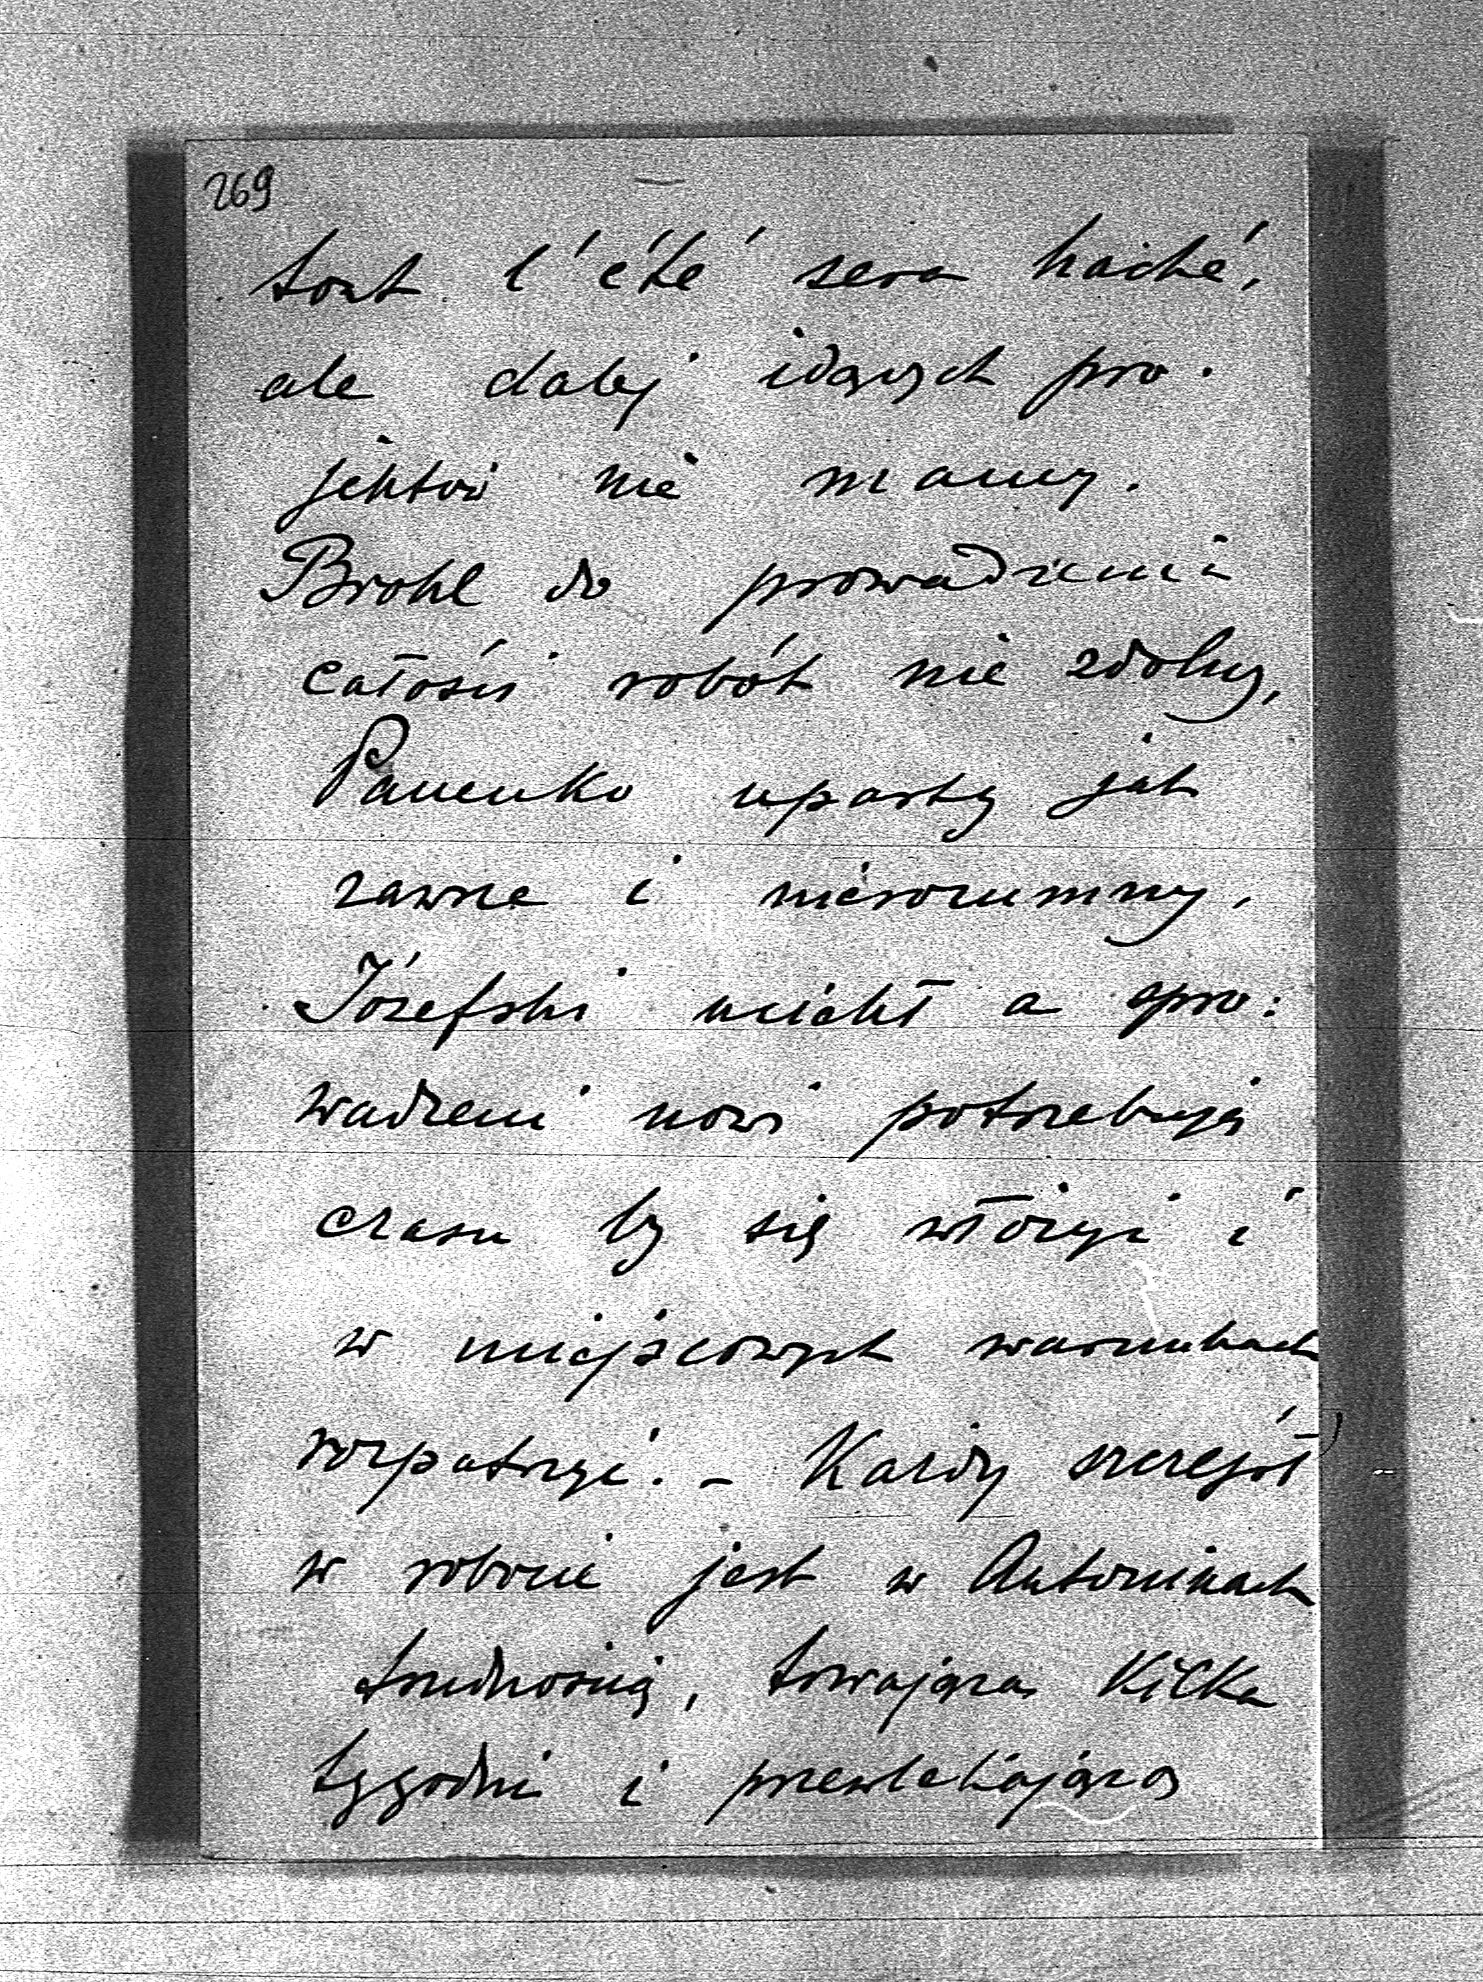 269
tout l'été sera haché,
ale dalej idących pro-
jektów nie mamy.
Brohl do prowadzenia
całości robót nie zdolny,
Panenko uparty jak
zawsze i nierozumny,
Józefski uciekł a spro-
wadzeni nowi potrzebują
czasu by się włożyć i
w miejscowych warunkach
rozpatrzyć. - Każdy szczegół
w robocie jest w Antoninach
trudnością, trwającą kilka
tygodni i przewlekającą